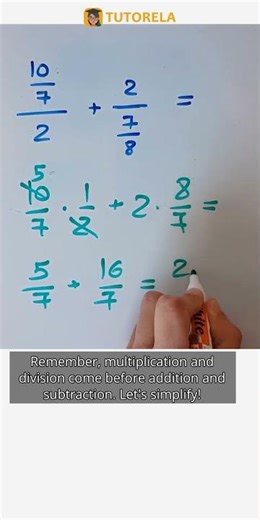 TUTORELA
10/7 / 2 + 2 / 7/8 =
5
10/7 · 1/2 + 2 · 8/7 =
5/7 + 16/7 = 2
Remember, multiplication and
division come before addition and
subtraction. Let's simplify!